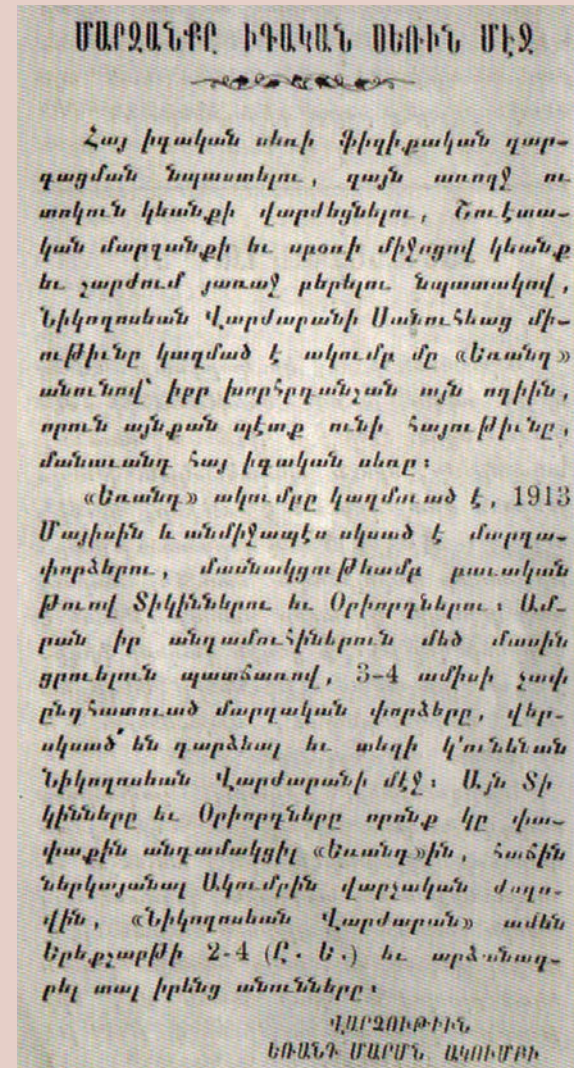 ՄԱՐԶԱՆՔԸ ԻԳԱԿԱՆ ՍԵՌԻՆ ՄԷՋ
Հայ իգական սեռի ֆիզիքական զար-
գացման նպաստելու, զայն առողջ ու
տոկուն կեանքի վարժեցնելու, Շուէտա-
կան մարզանքի եւ սբօռի միջոցով կեանք
եւ շարժում յառաջ բերելու նպատակով,
Նիկողոսեան Վարժարանի Սանուհեաց մի-
ութիւնը կազմած է ակումբ մը «Եռանդ»
անունով՝ իբր խորհրդանշան այն ոգիին,
որուն այնքան պէտք ունի հայութիւնը,
մանաւանդ հայ իգական սեռը։
«Եռանդ» ակումբը կազմուած է, 1913
Մայիսին և անմիջապէս սկսած է մարզա-
փորձերու, մասնակցութեամբ բաւական
թուով Տիկիններու եւ Օրիորդներու։ Ամ-
րան իր անդամուհիներուն մեծ մասին
ցրուելուն պատճառով, 3-4 ամիսի չափ
ընդհատուած մարզական փորձերը, վեր-
սկսած՛ են դարձեալ եւ տեղի կ՚ունենան
Նիկողոսեան Վարժարանի մէջ։ Այն Տի
կինները եւ Օրիորդները որոնք կը փա-
փաքին անդամակցիլ «Եռանդ»ին, հաճին
ներկայանալ Ակումբին վարչական ժողո-
վին, «Նիկողոսեան Վարժարան» ամեն
Երեքշաբթի 2-4 (Ը. Ե.) եւ արձանագ-
րել տալ իրենց անունները։
ՎԱՐՉՈՒԹԻՒՆ
ԵՌԱՆԴ ՄԱՐՄՆ. ԱԿՈՒՄԲԻ